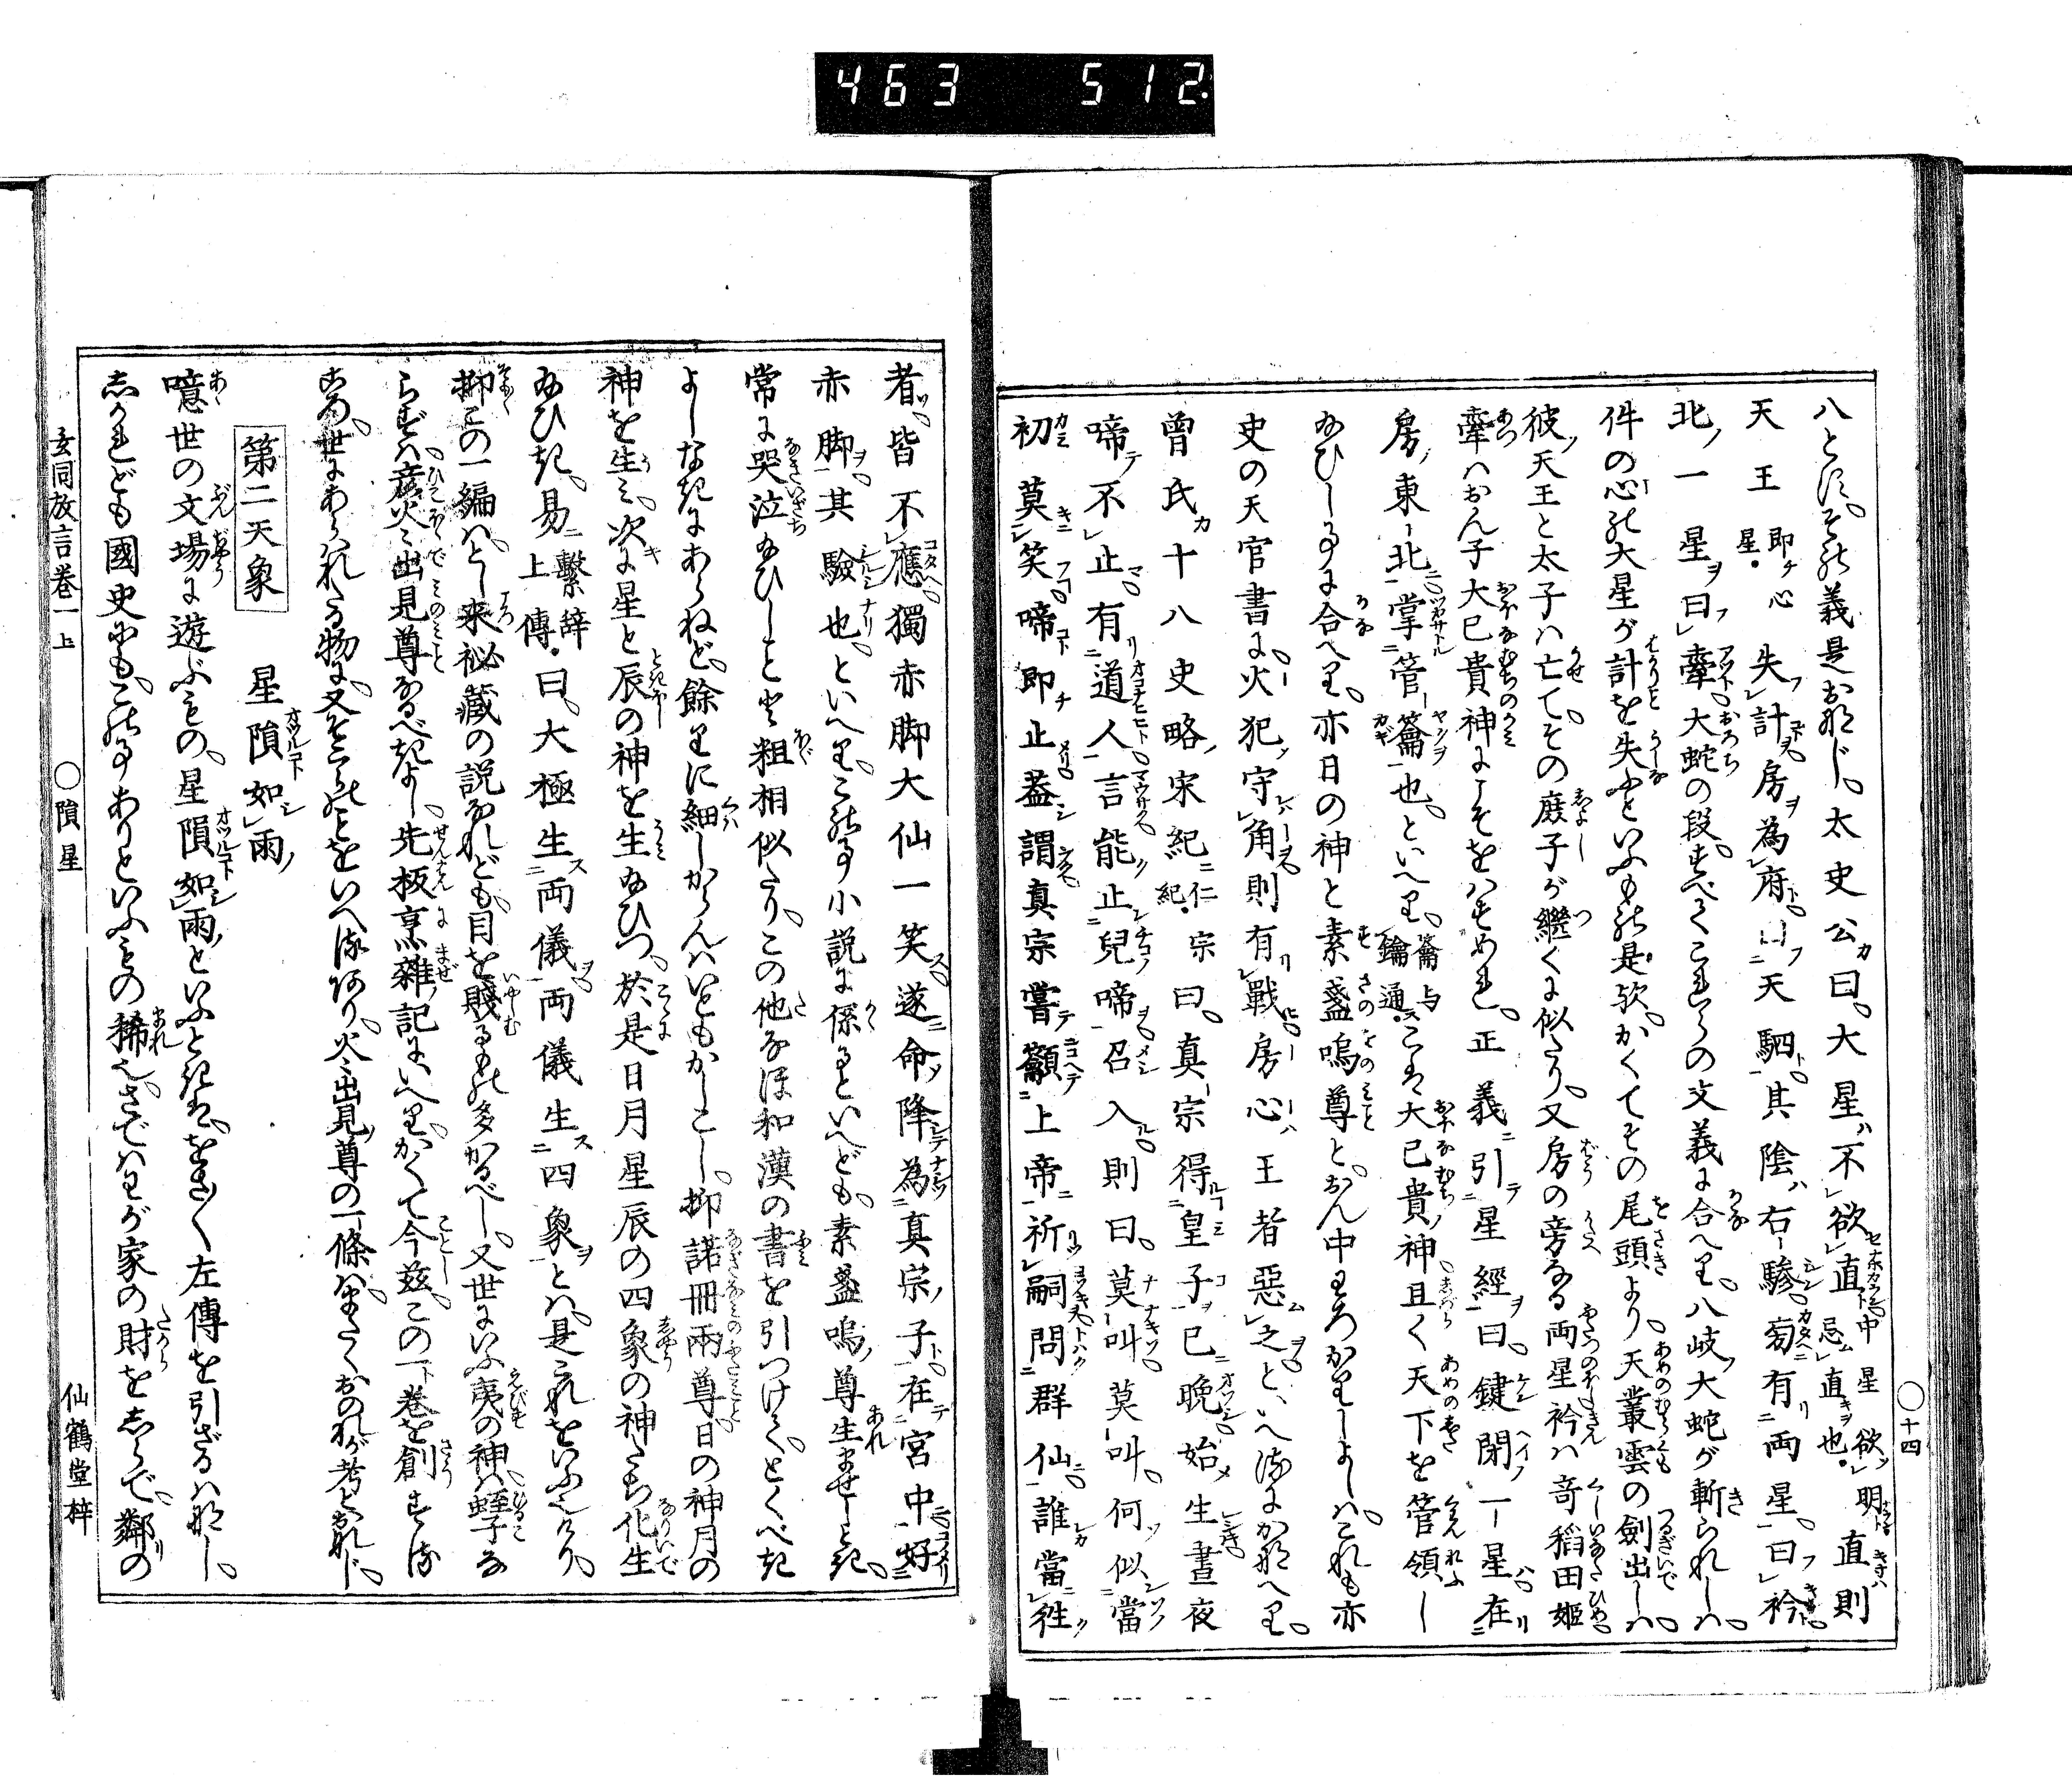 463 512
八とす。その義是おなじ。太史公曰。大星不欲直。中星欲明。忌直也。直則
天王即心星。失計。房為府。曰天駟。其陰右驂。旁有両星。曰衿。
北一星曰牽。大蛇の段。すべてこれらの文義に合へり。八岐大蛇が斬られしハ。
件の心の大星が計を失ふといふもの是歟。かくてその尾頭より。天叢雲の劍出しハ。
彼天王と太子ハ亡て。その庶子が継くに似たり。又房の旁なる両星衿ハ奇稲田姫。
牽ハおん子大已貴神にこそをハすめれ。正義ニ引星經曰。鍵閉一星在
房東北掌管籥也。といへり。籥与鑰通。こは大已貴神且く天下を管領し
給ひし事に合へり。亦日の神と素盞嗚尊と。おん中わろかりしよしハ。これも亦
史の天官書に。火犯守角則有戰房心王者惡之。といへるにかなへり。
曾氏十八史略宋紀仁宗紀曰。真宗得皇子已晩。始生晝夜
啼不止。有道人言能止兒啼。召入則曰。莫叫莫叫。何似當
初莫笑。啼即止。蓋謂真宗嘗籲上帝祈嗣。問群仙誰當徃
十四
者。皆不應。獨赤脚大仙一笑。遂命降為真宗子。在宮中好
赤脚。其驗也。といへり。この事小説に係るといへども。素盞嗚尊生ませしとき。
常に哭泣給ひしことと粗相似たり。この他なほ和漢の書を引つけて。とくべき
よしなきにあらねど。餘りに細しからんハいともかしこし。抑諾冊兩尊。日の神月の
神を生ミ。次に星と辰の神を生給ひつ。於是日月星辰の四象の神たち化生
給ひき。易繫辞上傳曰。大極生両儀。両儀生四象。とハ是これをいふなり。
抑この一編ハ。とし来祕藏の説なれども。目を賤るもの多かるべし。又世にいふ夷の神ハ。蛭子な
らずハ。彦火々出見尊なるべきよし。先板烹雑記にいへり。かくて今茲この下巻を創する
ころ。世にあらハれたる物に。又そこらのことをいへるあり。火々出見尊の一條ハ。全くおのれが考とおなじ。
第二天象
星隕如雨
噫世の文場に遊ぶもの。星隕如雨といふときは。をさをさく左傳を引ざるハなし。
しかれども國史にも。この事ありといふもの稀也。さでハわが家の財をしらで。鄰の
玄同放言巻一上
〇隕星
仙鶴堂梓